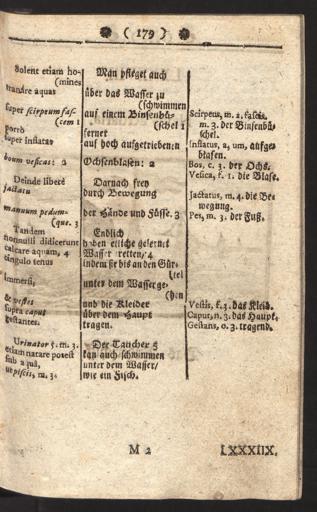 ( 179 )
Solent etiam ho-
(mines
tranare aquas
super scirpeum fas-
(cem 1
porrò
super inflatas
boum vesicas: 2
Deinde liberè
jactatu
manuum pedum-
(que. 3
Tandem
nonnulli didicerunt
calcare aquam, 4
cingulo tenus
immersi,
& vestes
supra caput
gestantes.
Urinator 5. m. 3.
etiam natare potest
sub aquâ,
ut piscis, m. 3.
Man pfleget auch
über das Wasser zu
(schwimmen
auf einem Binsenbü-
(schel 1
ferner
auf hoch aufgetriebenen
Ochsenblasen: 2
Darnach frey
durch Bewegung
der Hände und Füsse. 3
Endlich
haben etliche gelernet
Wasser tretten/ 4
indem sie bis an den Gür-
(tel
unter dem Wasser ge-
(hen
und die Kleider
über dem Haupt
tragen.
Der Taucher 5
kan auch schwimmen
unter dem Wasser/
wie ein Fisch.
Scirpeus, m. 2. fascis,
m. 3. der Binsenbü-
schel.
Inflatus, a, um, aufge-
blasen.
Bos, c. 3. der Ochs.
Vesica, f. 1. die Blase.
Jactatus, m. 4. die Be-
wegung.
Pes, m. 3. der Fuß.
Vestis, f. 3. das Kleid.
Caput, n. 3. das Haupt.
Gestans, o. 3. tragend.
M 2
LXXXIIX.